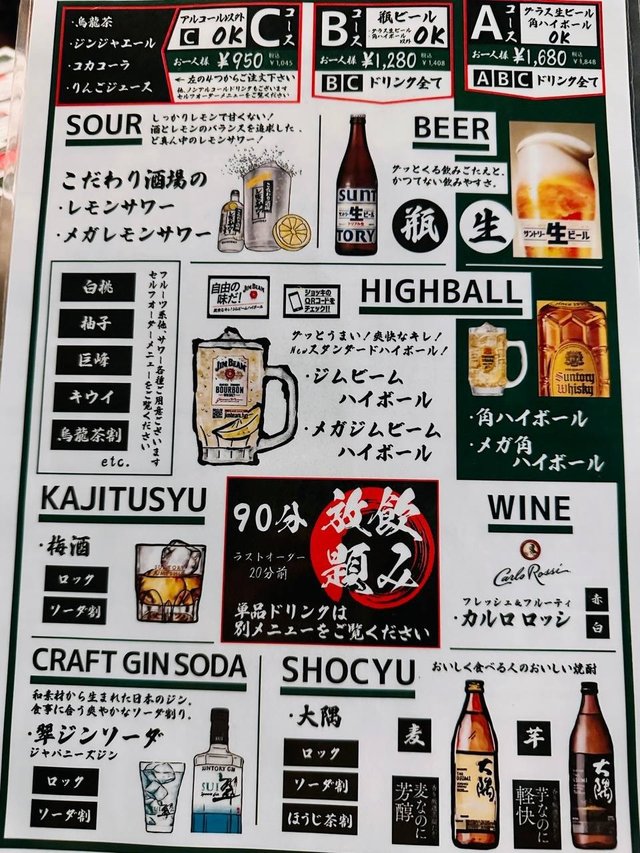 ・烏龍茶
・ジンジャエール
・コカコーラ
・りんごジュース
アルコール以外
C OK
Cコース
お一人様 ¥950 税込 ¥1,045
←左の4つからご注文下さい
他、ノンアルコールドリンクもございます
セルフオーダーメニューをご覧ください
Bコース
瓶ビール
角ハイボール以外
OK
お一人様 ¥1,280 税込 ¥1,408
BC ドリンク全て
Aコース
グラス生ビール
角ハイボール
OK
お一人様 ¥1,680 税込 ¥1,848
ABC ドリンク全て
SOUR
しっかりレモンで甘くない!
酒とレモンのバランスを追求した、
ど真ん中のレモンサワー!
こだわり酒場の
・レモンサワー
・メガレモンサワー
BEER
グッとくる飲みごたえと、
かつてない飲みやすさ。
SUNTORY
生ビール
瓶
生
サントリー生ビール
白桃
柚子
巨峰
キウイ
烏龍茶割
etc.
フルーツ系他、サワー各種ご用意ございます
セルフオーダーメニューをご覧ください
自由の味だ!
JIM BEAM
ジョッキの
QRコードを
チェック!!
HIGHBALL
グッとうまい!爽快なキレ!
Newスタンダードハイボール!
JIM BEAM
BOURBON
・ジムビーム
ハイボール
・メガジムビーム
ハイボール
角
Suntory
Whisky
・角ハイボール
・メガ角
ハイボール
KAJITUSYU
・梅酒
ロック
ソーダ割
90分
飲み放題
ラストオーダー
20分前
単品ドリンクは
別メニューをご覧ください
WINE
Carlo Rossi
フレッシュ&フルーティ
・カルロ ロッシ
赤
白
CRAFT GIN SODA
和素材から生まれた日本のジン。
食事に合う爽やかなソーダ割り。
・翠ジンソーダ
ジャパニーズジン
ロック
ソーダ割
SUNTORY GIN
SUI
翠
SHOCYU
おいしく食べる人のおいしい焼酎
・大隅
ロック
ソーダ割
ほうじ茶割
麦
麦なのに
芳醇
大隅
芋
芋なのに
軽快
大隅